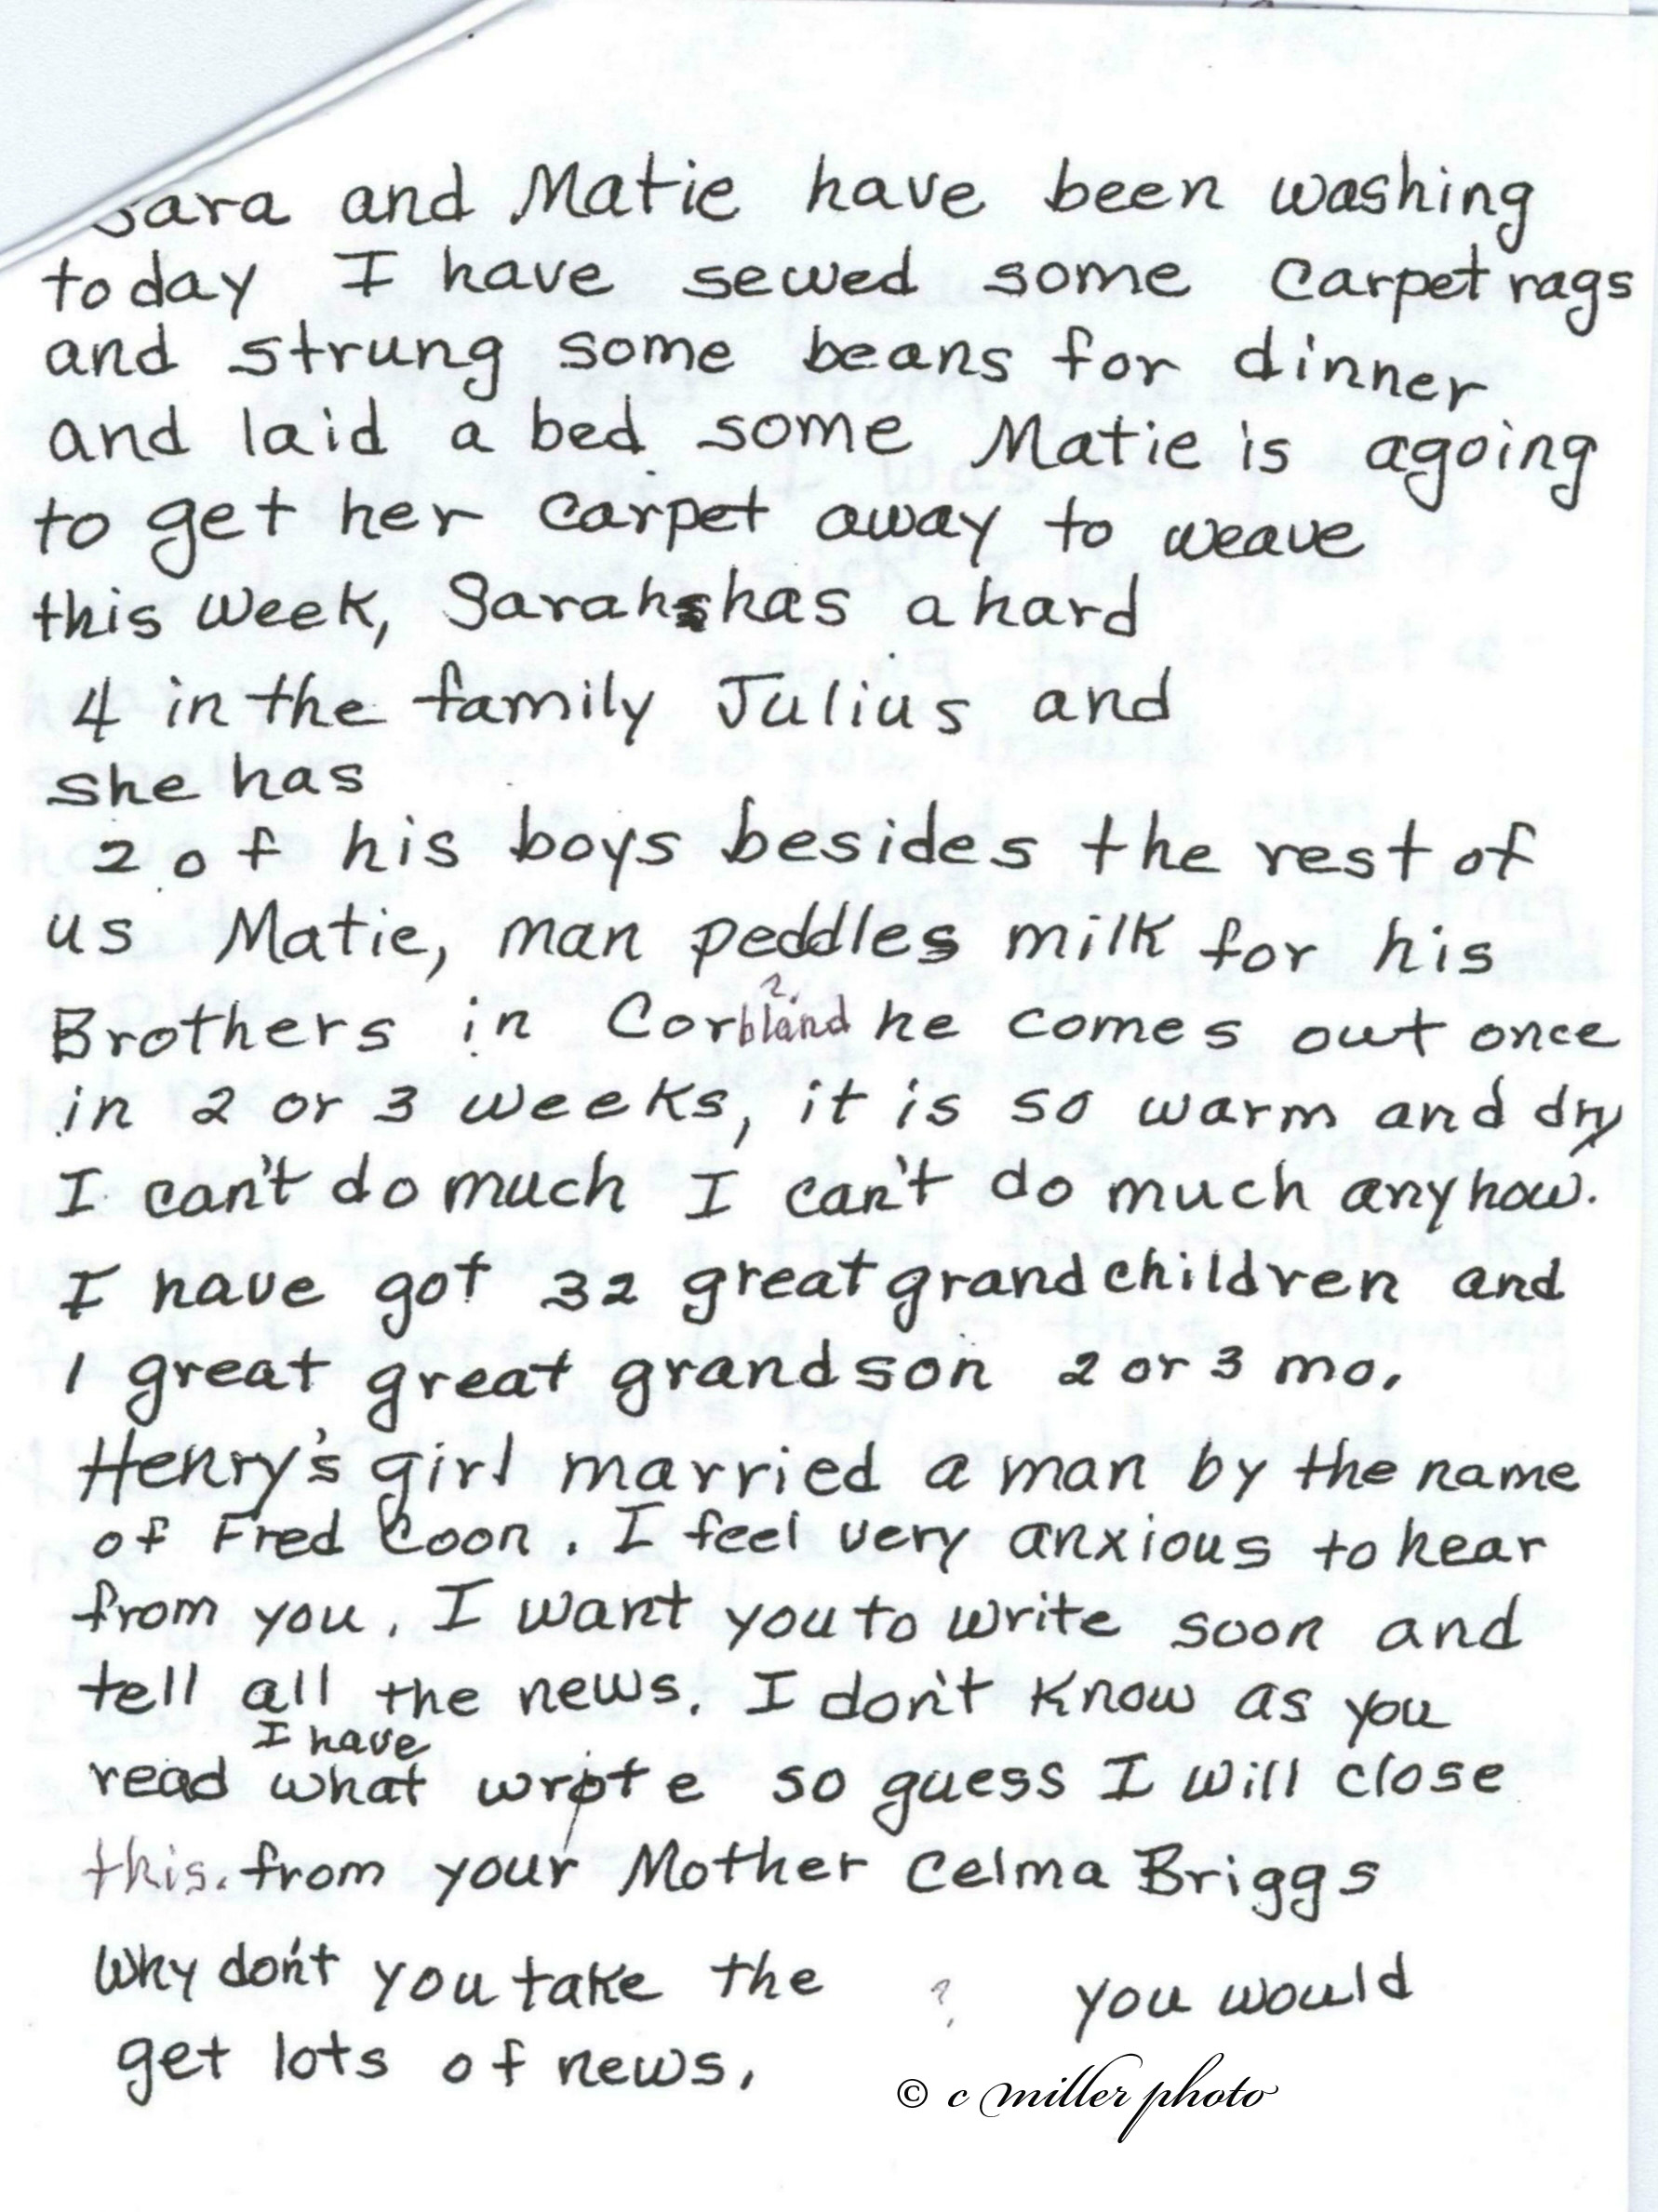 Sara and Matie have been washing
today I have sewed some carpet rags
and strung some beans for dinner
and laid a bed some Matie is agoing
to get her carpet away to weave
this week, Sarah has a hard
4 in the family Julius and
she has
2 of his boys besides the rest of
us Matie, man peddles milk for his
Brothers in Corbland ? he comes out once
in 2 or 3 weeks, it is so warm and dry
I can't do much I can't do much anyhow.
I have got 32 great grandchildren and
1 great great grandson 2 or 3 mo.
Henry's girl married a man by the name
of Fred Coon. I feel very anxious to hear
from you. I want you to write soon and
tell all the news. I don't know as you
I have
read what wrote so guess I will close
this. from your Mother Celma Briggs
Why don't you take the ? you would
get lots of news.
© c miller photo